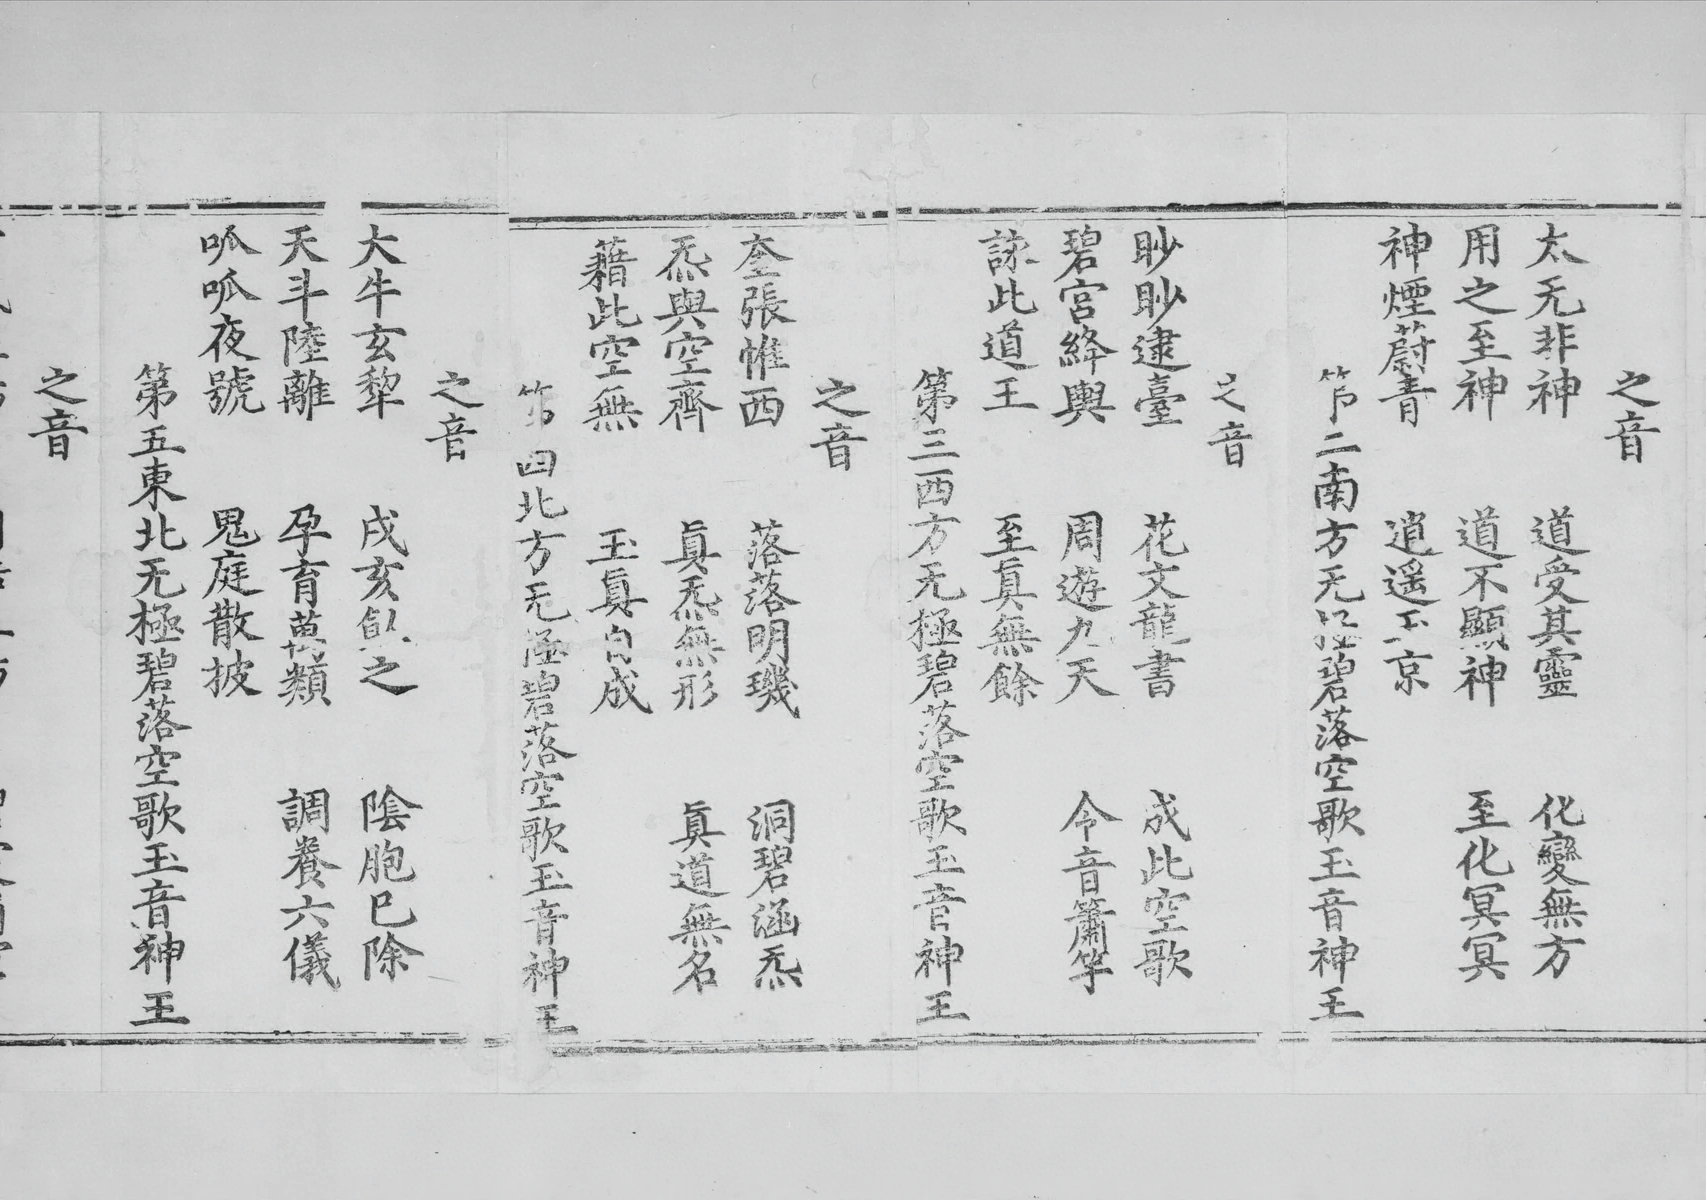 之音
太无非神 道受其靈 化變無方
用之至神 道不顯神 至化冥冥
神煙蔚青 逍遥玉京
第二南方无極碧落空歌玉音神王
之音
眇眇逮臺 花文龍書 成此空歌
碧宮絳輿 周遊九天 令音簫竽
詠此道王 至眞無餘
第三西方无極碧落空歌玉音神王
之音
奎張惟西 落落明璣 洞碧涵炁
炁與空齊 眞炁無形 眞道無名
藉此空無 玉眞自成
第四北方无極碧落空歌玉音神王
之音
大牛玄犂 戌亥 之 陰胞巳除
天斗陸離 孕育萬類 調養六儀
呱呱夜號 鬼庭散披
第五東北无極碧落空歌玉音神王
之音